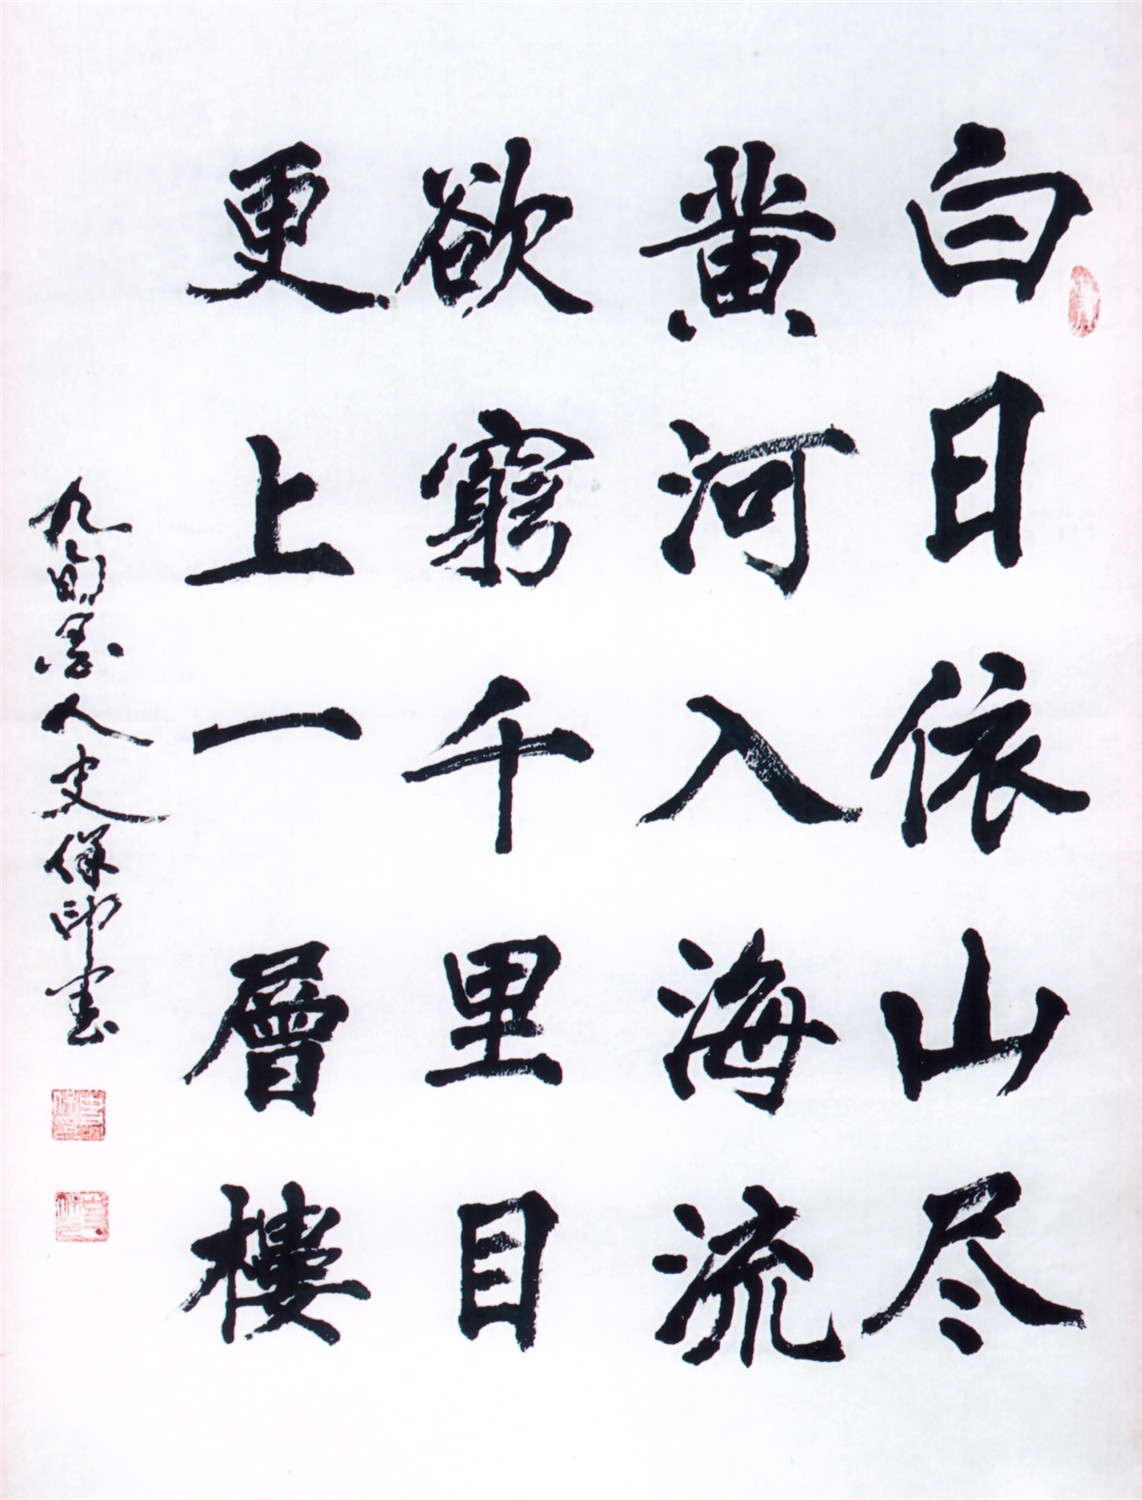 白日依山尽
黄河入海流
欲窮千里目
更上一層樓
九旬墨人史保印書